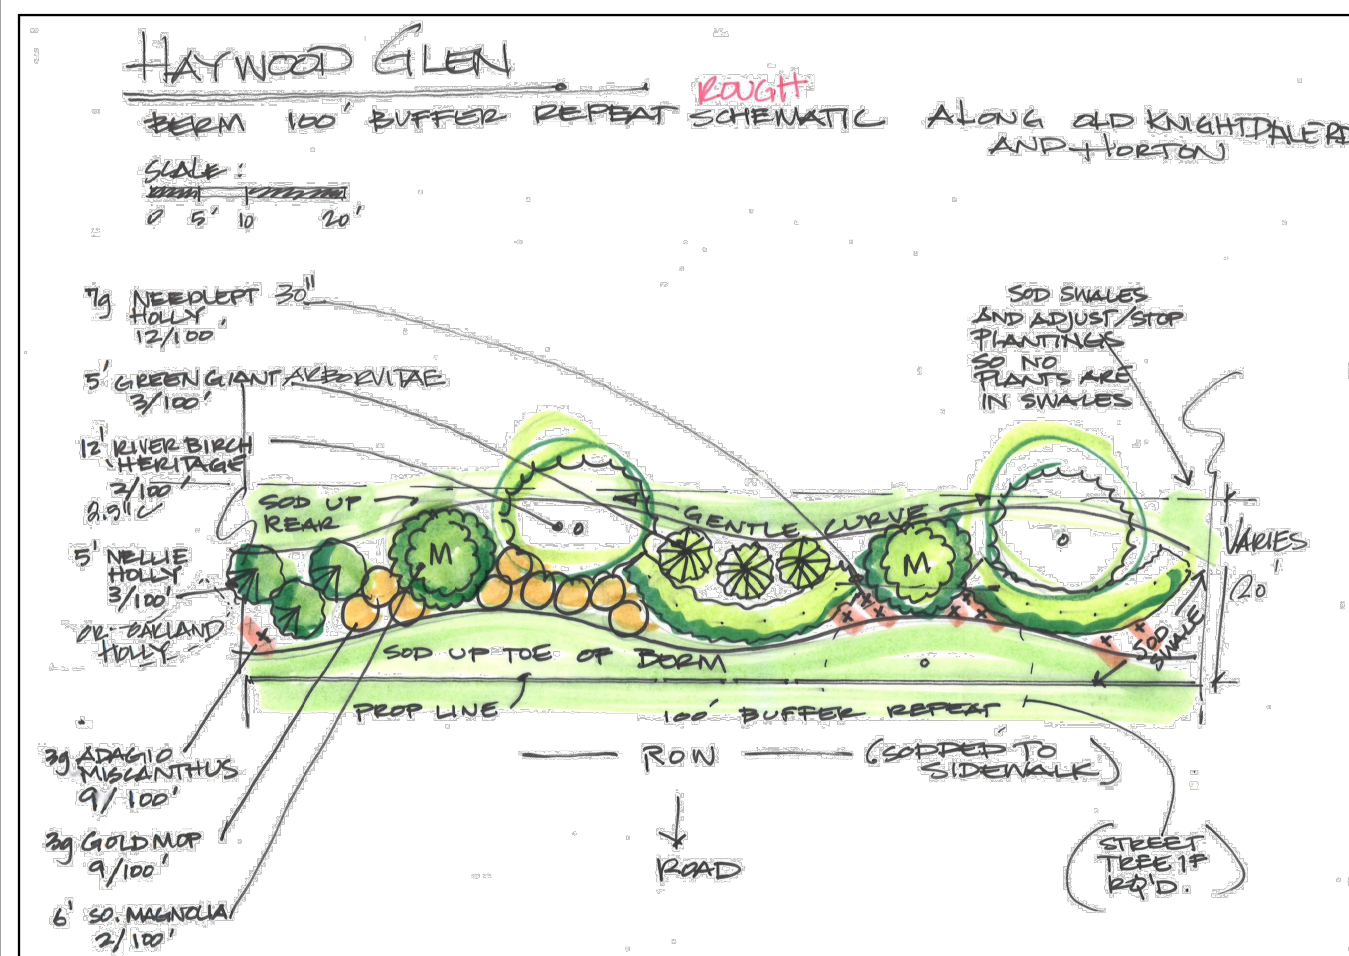 HAYWOOD GLEN
ROUGH
BERM 100' BUFFER REPEAT SCHEMATIC ALONG OLD KNIGHTDALE RD
AND HORTON
SCALE:
0 5' 10 20'
7g NEEDLEPT 30"
HOLLY
12/100'
5' GREEN GIANT ARBORVITAE
3/100'
12' RIVER BIRCH
'HERITAGE'
2/100'
2.5"C
5' NELLIE
HOLLY
3/100'
OR OAKLAND
HOLLY
3g ADAGIO
MISCANTHUS
9/100'
3g GOLD MOP
9/100'
6' SO. MAGNOLIA
2/100'
SOD SWALES
AND ADJUST/STOP
PLANTINGS
SO NO
PLANTS ARE
IN SWALES
SOD UP
REAR
GENTLE CURVE
M
M
VARIES
20'
SOD
SWALE
SOD UP TOE OF BERM
PROP LINE
100' BUFFER REPEAT
ROW
(SODDED TO
SIDEWALK)
ROAD
(STREET
TREE IF
RQ'D.)